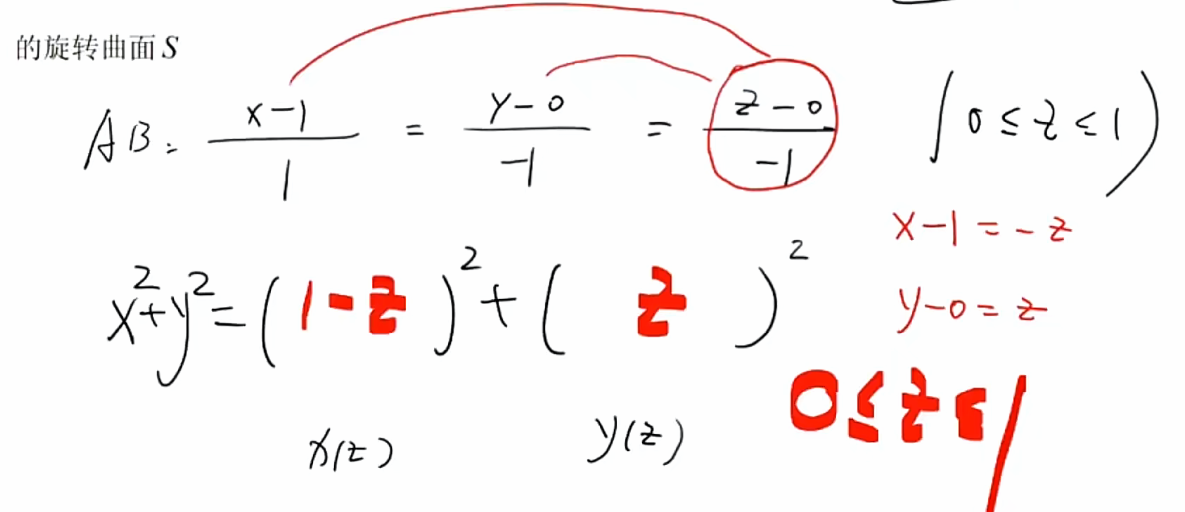 的旋转曲面 S
AB: (x-1)/1 = (y-0)/-1 = (z-0)/-1 (0≤z≤1)
x-1=-z
x²+y²=(1-z)²+(z)²
y-0=z
0≤z≤1
x(z) y(z)